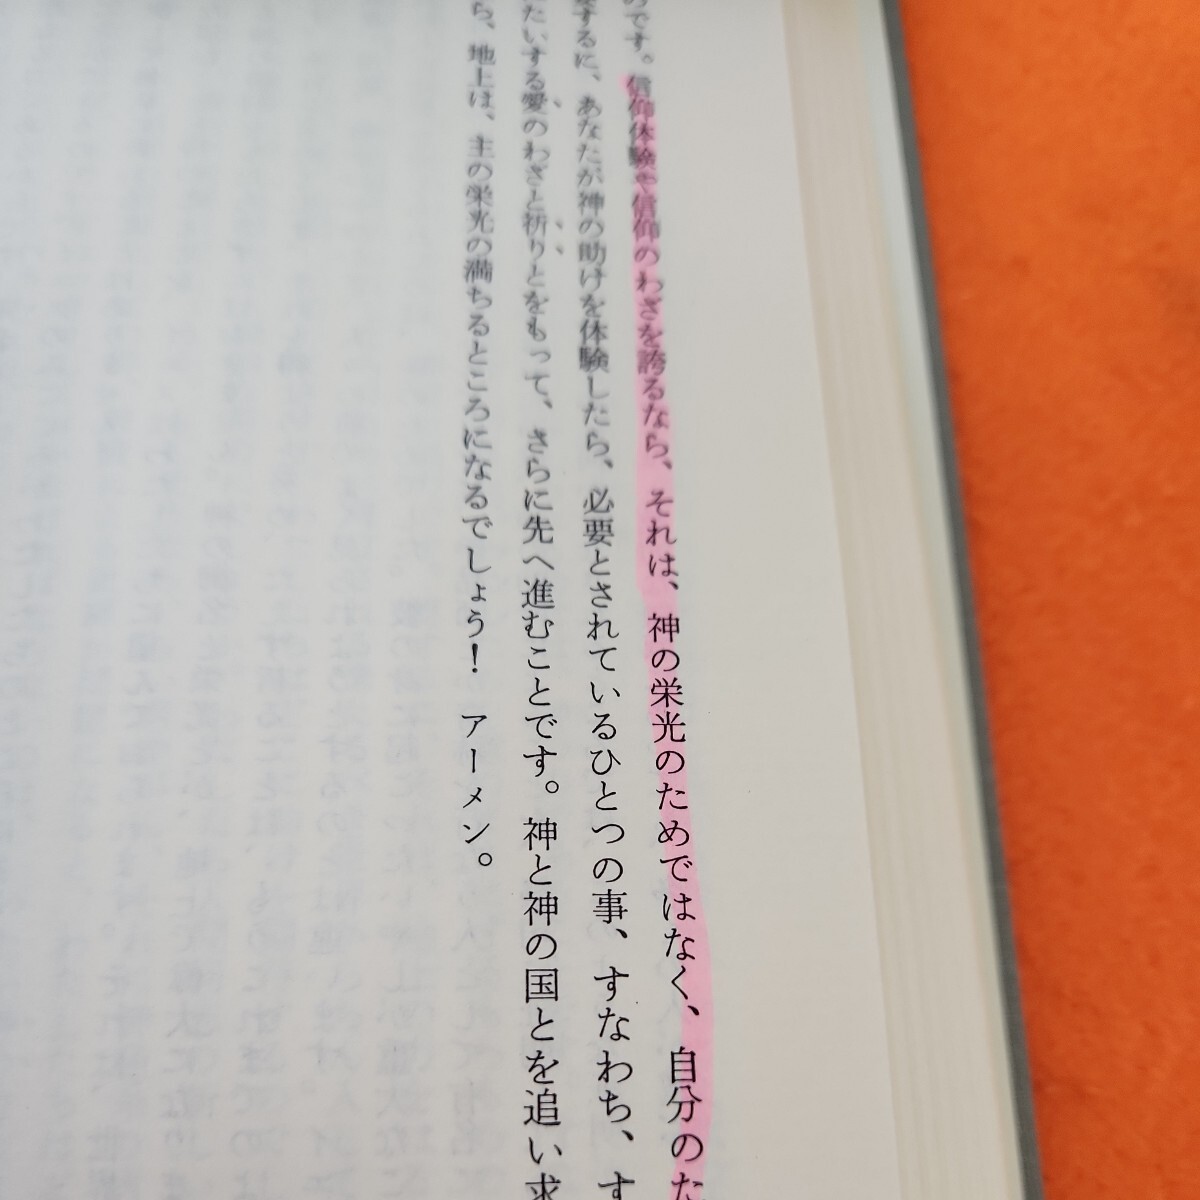 のです。信仰体験や信仰のわざを誇るなら、それは、神の栄光のためではなく、自分のた
するに、あなたが神の助けを体験したら、必要とされているひとつの事、すなわち、す
たいする愛のわざと祈りとをもって、さらに先へ進むことです。神と神の国とを追い求
ら、地上は、主の栄光の満ちるところになるでしょう！　アーメン。